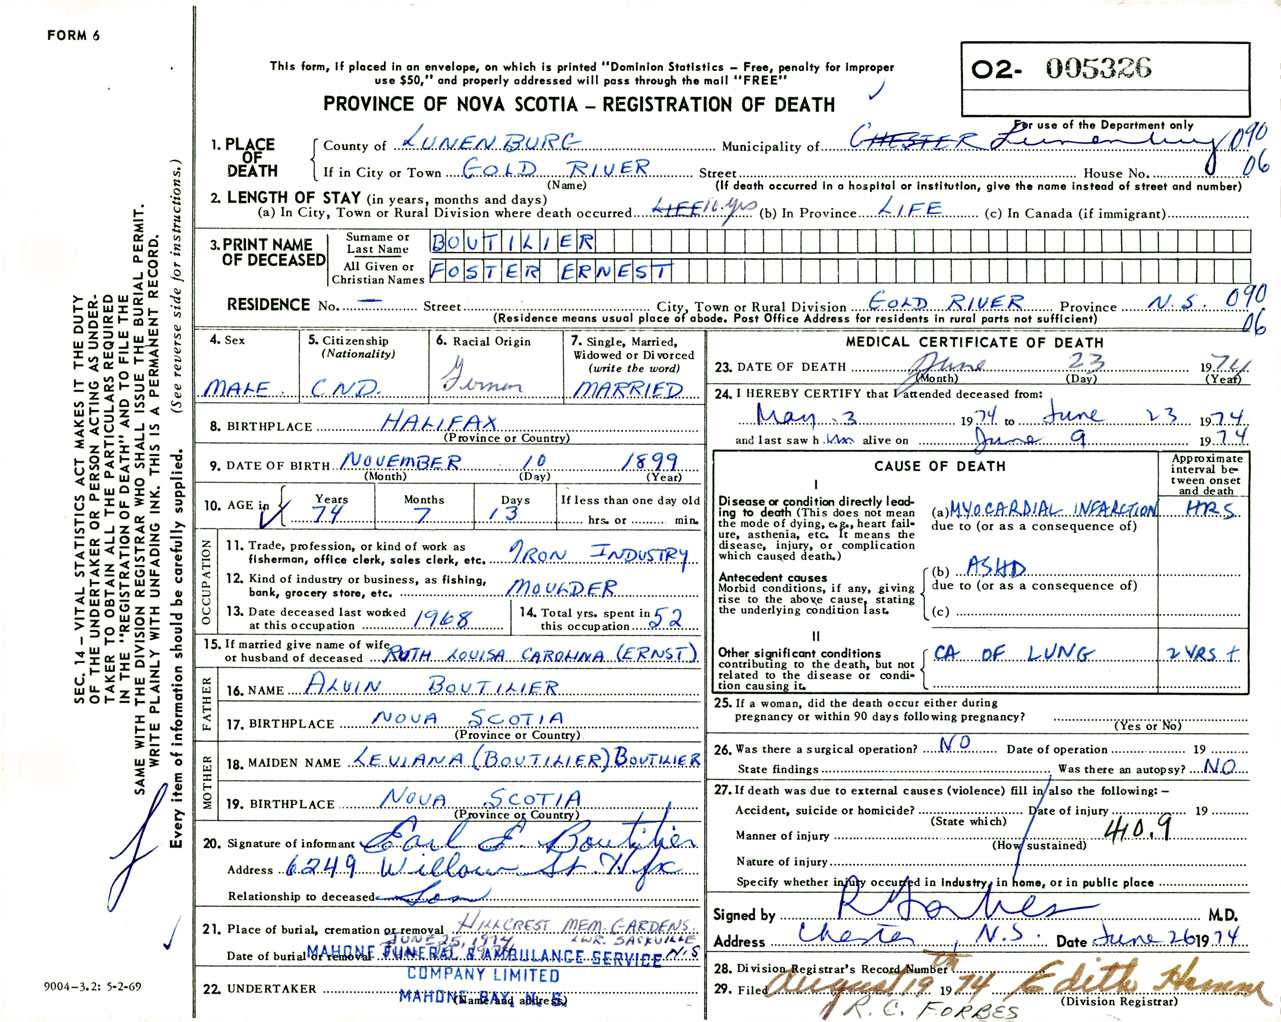 FORM 6
This form, if placed in an envelope, on which is printed "Dominion Statistics – Free, penalty for improper
use $50," and properly addressed will pass through the mail "FREE"
PROVINCE OF NOVA SCOTIA – REGISTRATION OF DEATH
O2- 005326
For use of the Department only
1. PLACE OF DEATH County of LUNENBURG Municipality of CHESTER Lunenburg 090
If in City or Town GOLD RIVER Street House No. 06
(Name) (If death occurred in a hospital or institution, give the name instead of street and number)
2. LENGTH OF STAY (in years, months and days)
(a) In City, Town or Rural Division where death occurred LIFE 10 yrs (b) In Province LIFE (c) In Canada (if immigrant)
3. PRINT NAME OF DECEASED
Surname or Last Name BOUTILIER
All Given or Christian Names FOSTER ERNEST
RESIDENCE No. — Street City, Town or Rural Division GOLD RIVER Province N.S. 090
(Residence means usual place of abode. Post Office Address for residents in rural parts not sufficient) 06
4. Sex
MALE.
5. Citizenship
(Nationality)
CND.
6. Racial Origin
German
7. Single, Married,
Widowed or Divorced
(write the word)
MARRIED
8. BIRTHPLACE HALIFAX
(Province or Country)
9. DATE OF BIRTH NOVEMBER 10 1899
(Month) (Day) (Year)
10. AGE in Years Months Days If less than one day old
74 7 13 hrs. or min.
OCCUPATION
11. Trade, profession, or kind of work as
fisherman, office clerk, sales clerk, etc. IRON INDUSTRY
12. Kind of industry or business, as fishing,
bank, grocery store, etc. MOULDER
13. Date deceased last worked
at this occupation 1968
14. Total yrs. spent in
this occupation 52
15. If married give name of wife
or husband of deceased RUTH LOUISA CAROLINA (ERNST)
FATHER
16. NAME ALVIN BOUTILIER
17. BIRTHPLACE NOVA SCOTIA
(Province or Country)
MOTHER
18. MAIDEN NAME LEVIANA (BOUTILIER) BOUTILIER
19. BIRTHPLACE NOVA SCOTIA
(Province or Country)
20. Signature of informant Earl E. Boutilier
Address 6249 Willow St. Hfx
Relationship to deceased Son
21. Place of burial, cremation or removal HILLCREST MEM. GARDENS
LWR. SACKVILLE N.S
Date of burial or removal JUNE 25, 1974
MAHONE FUNERAL & AMBULANCE SERVICE
COMPANY LIMITED
22. UNDERTAKER MAHONE BAY, N. S.
(Name and address)
MEDICAL CERTIFICATE OF DEATH
23. DATE OF DEATH June 23 1974
(Month) (Day) (Year)
24. I HEREBY CERTIFY that I attended deceased from:
May 3 1974 to June 23 1974
and last saw him alive on June 9 1974
CAUSE OF DEATH
Approximate
interval be-
tween onset
and death
I
Disease or condition directly lead-
ing to death (This does not
mean the mode of dying, e.g., heart fail-
ure, asthenia, etc. It means the
disease, injury, or complication
which caused death.)
(a) MYOCARDIAL INFARCTION HRS
due to (or as a consequence of)
Antecedent causes
Morbid conditions, if any, giving
rise to the above cause, stating
the underlying condition last.
(b) ASHD
due to (or as a consequence of)
(c)
II
Other significant conditions
contributing to the death, but not
related to the disease or condi-
tion causing it.
CA OF LUNG 2 YRS +
25. If a woman, did the death occur either during
pregnancy or within 90 days following pregnancy?
(Yes or No)
26. Was there a surgical operation? NO Date of operation 19
State findings Was there an autopsy? NO
27. If death was due to external causes (violence) fill in also the following: –
Accident, suicide or homicide? Date of injury 19
(State which)
Manner of injury 40.9
(How sustained)
Nature of injury
Specify whether injury occurred in industry, in home, or in public place
Signed by R Forbes M.D.
Address Chester, N.S. Date June 26 1974
28. Division Registrar's Record Number
29. Filed August 19th 1974 Edith Hamm
(Division Registrar)
R. C. FORBES
SEC. 14 – VITAL STATISTICS ACT MAKES IT THE DUTY
OF THE UNDERTAKER OR PERSON ACTING AS UNDER-
TAKER TO OBTAIN ALL THE PARTICULARS REQUIRED
IN THE "REGISTRATION OF DEATH" AND TO FILE THE
SAME WITH THE DIVISION REGISTRAR WHO SHALL ISSUE THE BURIAL PERMIT.
WRITE PLAINLY WITH UNFADING INK. THIS IS A PERMANENT RECORD.
Every item of information should be carefully supplied. (See reverse side for instructions.)
9004-3.2: 5-2-69